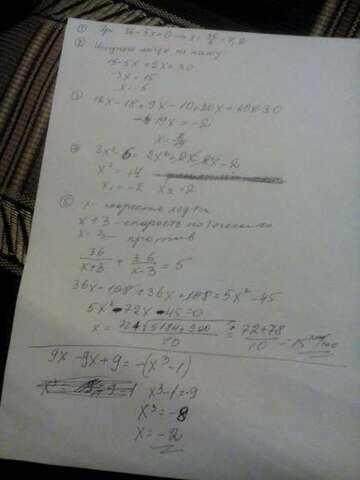 ① При 36-5x=0 → x=36/5=7,2
②
15-5x+2x=30
-3x=15
x=-5
③ 12x-18+9x-10=20x+60x-30
19x=-2
④ 3x²-6=2x²+2x-2x-2
x²=+4
x₁=-2 x₂=2
⑤ x- скорость лодки
x+3- скорость по течению
x-3- против
36/(x+3) + 36/(x-3) = 5
36x-108+36x+108=5x²-45
5x²-72x-45=0
x = 72+√5184+900 / 10 = 72+78 / 10 = 15
9x-9x+9=-(x³-1)
x³-1=-9
x³=-8
x=-2